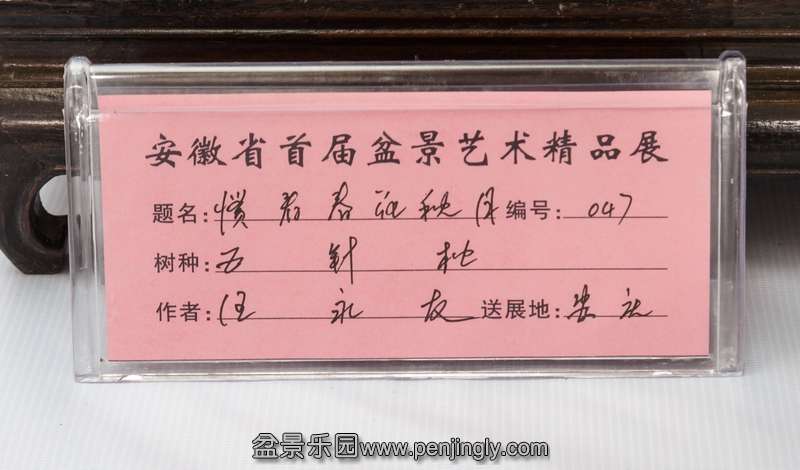 安徽省首届盆景艺术精品展
题名: 惯看春花秋月 编号: 047
树种: 五針松
作者: 汪永友 送展地: 安庆
盆景乐园www.penjingly.com